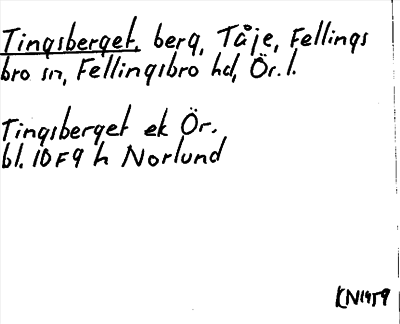 Tingsberget, berg, Tåje, Fellings
bro sn, Fellingsbro hd, Ör. l.
Tingsberget ek Ör.
bl. 10F9h Norlund
KN1959